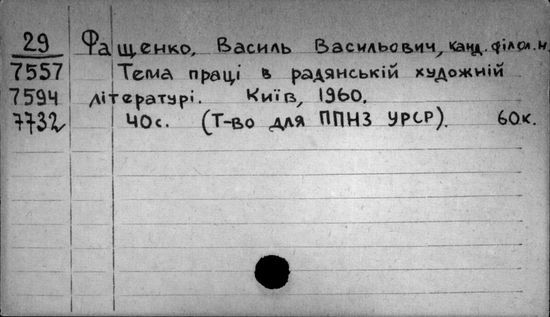 29 Фащенко, Василь Васильович, канд. філол. н.
7557 Тема праці в радянській художній
7594 літературі. Київ, 1960.
7732 40с. (Т-во для ППНЗ УРСР). 60к.